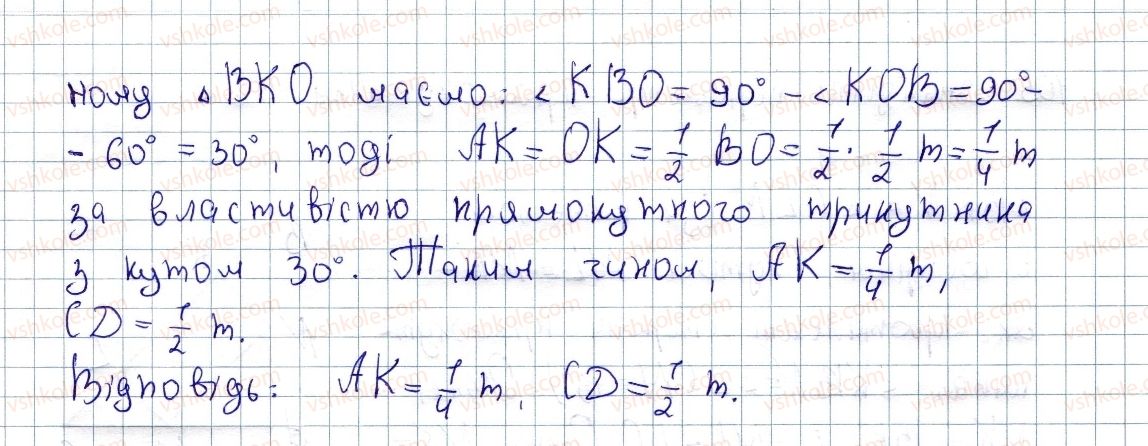 ному △ BKO маємо: ∠KBO = 90° - ∠KOB = 90° -
- 60° = 30°, тоді AK = OK = 1/2 BO = 1/2 · 1/2 m = 1/4 m
за властивістю прямокутного трикутника
з кутом 30°. Таким чином, AK = 1/4 m,
CD = 1/2 m.
Відповідь: AK = 1/4 m, CD = 1/2 m.